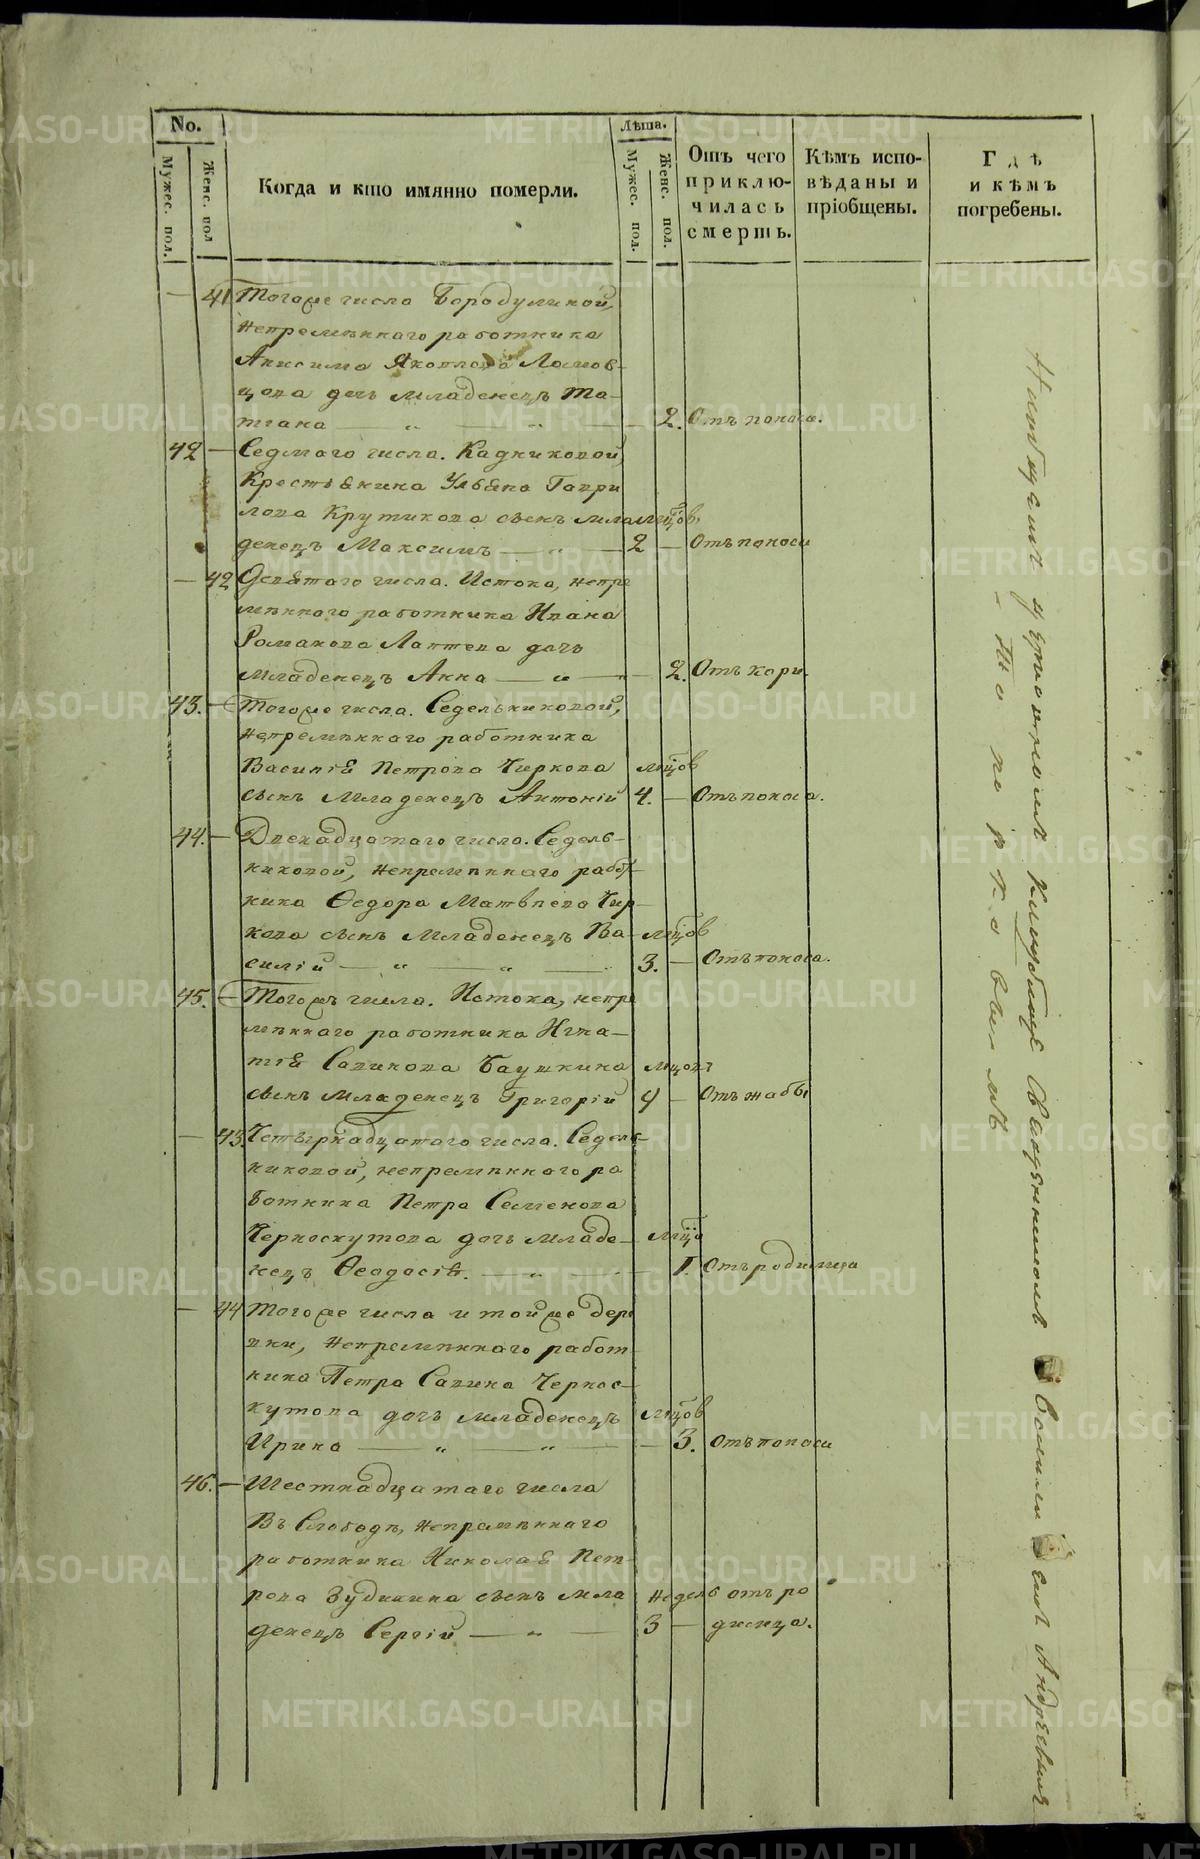 No.
Мужес. пол.
Женс. пол
Когда и кто имянно померли.
Лѣта.
Мужес. пол.
Женс. пол.
Отъ чего приклю-чилась смерть.
Кѣмъ испо-вѣданы и пріобщены.
Гдѣ и кѣмъ погребены.
— 41 Тогоже числа Бородулиной,
непремѣннаго работника
Анисима Яковлева Ломов-
цова дочь младенецъ Та-
тіана — 2. Отъ поноса.
42 — Седмаго числа. Кадниковой,
Крестьянина Ульяна Гаври
лова Крутикова сынъ мла мцов
денецъ Максимъ — 2 — Отъ поноса
— 42 Девятаго числа. Истока, непре
мѣннаго работника Ивана
Романова Лаптева дочь
младенецъ Анна — 2. Отъ кори.
43. — Тогоже числа. Седельниковой,
непремѣннаго работника
Василія Петрова Чиркова мцов
сынъ младенецъ Антоній 4. — Отъ поноса.
44. — Двенадцатаго числа. Седель-
никовой, непремѣннаго работ
ника Ѳедора Матвеева Чир-
кова сынъ младенецъ Ва- мцов
силій — 3. — Отъ поноса.
45. — Тогожъ числа. Истока, непре
мѣннаго работника Игна-
тія Савинова Баушкина мцовъ
сынъ младенецъ Григорій 9 — Отъ жабы
— 43. Четырнадцатаго числа. Седель-
никовой, непремѣннаго ра
ботника Петра Семенова
Черноскутова дочь младе- мца
нецъ Ѳеодосія. — 1. Отъ родимца
— 44 Тогоже числа и тойже дере
вни, непремѣннаго работ
ника Петра Савина Чернос-
кутова дочь младенецъ мцов
Ирина — 3. Отъ поноса
46. — Шестнадцатаго числа
Въ Слободѣ, непремѣннаго
работника Николая Пет-
рова Зудихина сынъ мла недель отъ ро
денецъ Сергій — 3 — димца.
На общемъ
кладбище Священникомъ
Андреевымъ
METRIKI.GASO-URAL.RU